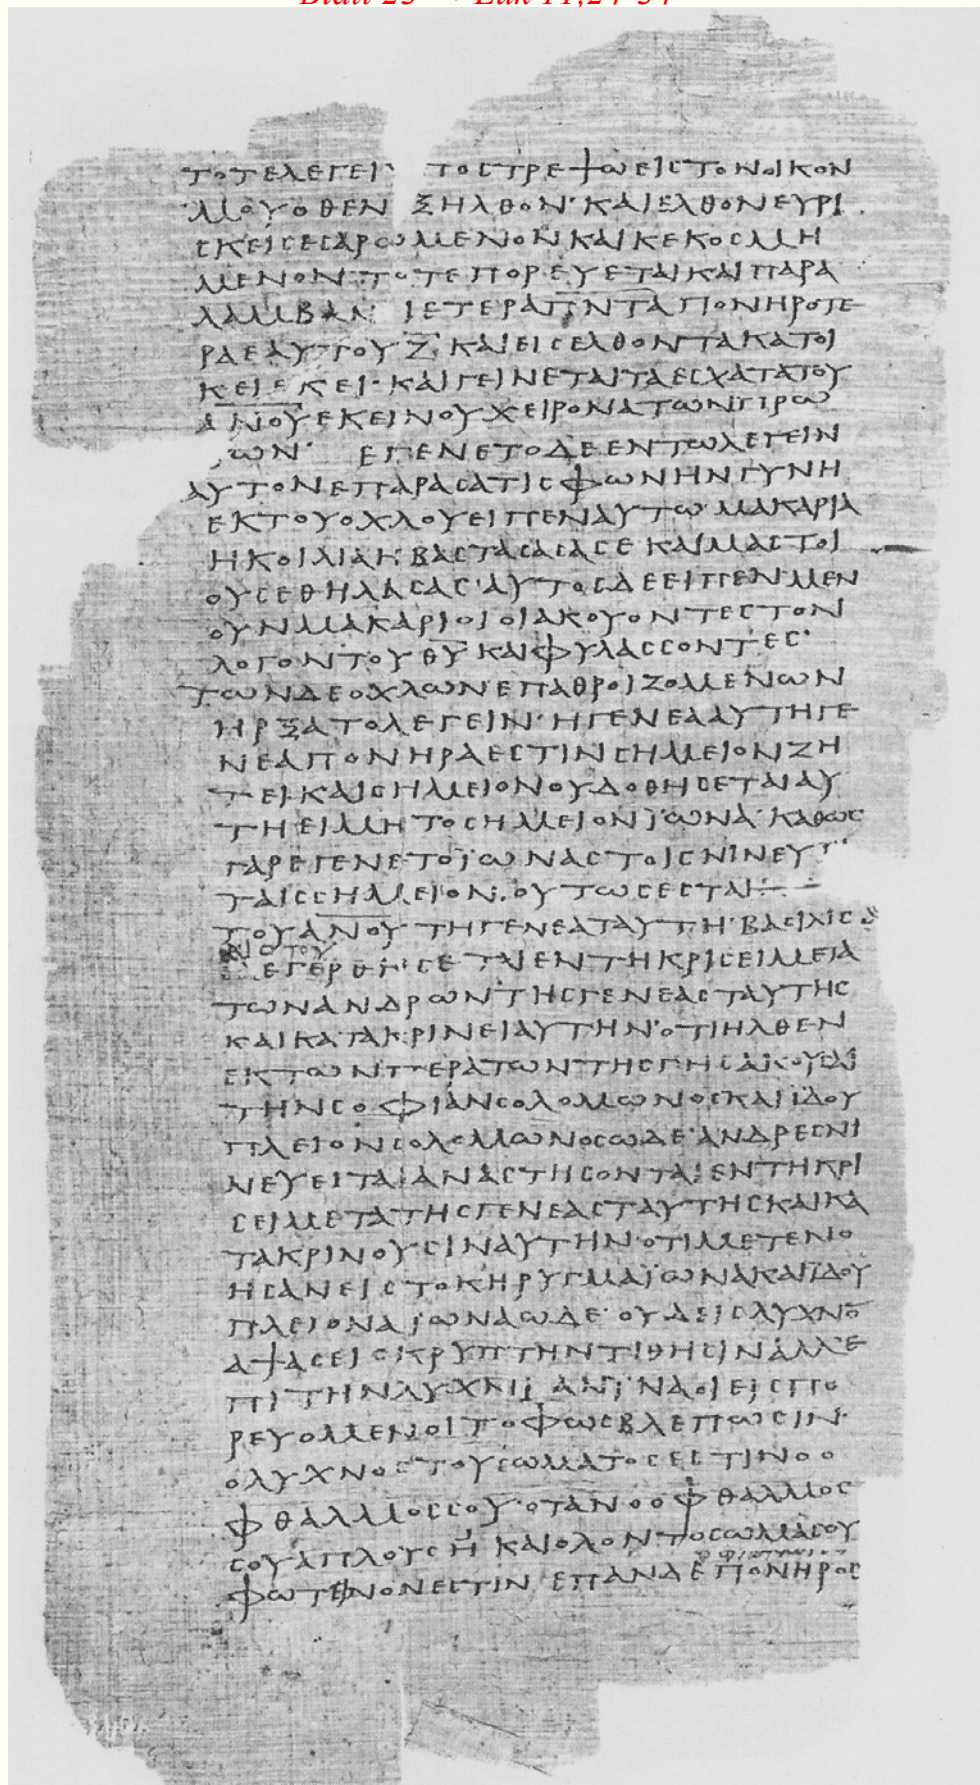 ΤΟΤΕΛΕΓΕΙ ΤΟCΤΡΕΨΩΕΙCΤΟΝΟΙΚΟΝ
ΜΟΥΟΘΕΝ ΞΗΛΘΟΝ·ΚΑΙΕΛΘΟΝΕΥΡΙ
CΚΕΙCΕCΑΡΩΜΕΝΟΝΚΑΙΚΕΚΟCΜΗ
ΜΕΝΟΝ·ΤΟΤΕΠΟΡΕΥΕΤΑΙΚΑΙΠΑΡΑ
ΛΑΜΒΑΝ ΙΕΤΕΡΑΠΝ̅ΤΑΠΟΝΗΡΟΤΕ
ΡΑΕΑΥΤΟΥΖ̅ ΚΑΙΕΙCΕΛΘΟΝΤΑΚΑΤΟΙ
ΚΕΙΕΚΕΙ·ΚΑΙΓΕΙΝΕΤΑΙΤΑΕCΧΑΤΑΤΟΥ
Α̅Ν̅Ο̅Υ̅ΕΚΕΙΝΟΥΧΕΙΡΟΝΑΤΩΝΠΡΩ
ΩΝ· ΕΓΕΝΕΤΟΔΕΕΝΤΩΛΕΓΕΙΝ
ΑΥΤΟΝΕΠΑΡΑCΑΤΙCΦΩΝΗΝΓΥΝΗ
ΕΚΤΟΥΟΧΛΟΥΕΙΠΕΝΑΥΤΩ·ΜΑΚΑΡΙΑ
ΗΚΟΙΛΙΑΗ·ΒΑCΤΑCΑCΑCΕ ΚΑΙΜΑCΤΟΙ
ΟΥCΕΘΗΛΑCΑC·ΑΥΤΟCΔΕΕΙΠΕΝ·ΜΕΝ
ΟΥΝΜΑΚΑΡΙΟΙΟΙΑΚΟΥΟΝΤΕCΤΟΝ
ΛΟΓΟΝΤΟΥΘ̅Υ̅ΚΑΙΦΥΛΑCCΟΝΤΕC·
ΤΩΝΔΕΟΧΛΩΝΕΠΑΘΡΟΙΖΟΜΕΝΩΝ
ΗΡΞΑΤΟΛΕΓΕΙΝ·ΗΓΕΝΕΑΑΥΤΗΓΕ
ΝΕΑΠΟΝΗΡΑΕCΤΙΝCΗΜΕΙΟΝΖΗ
ΤΕΙ·ΚΑΙCΗΜΕΙΟΝΟΥΔΟΘΗCΕΤΑΙΑΥ
ΤΗΕΙΜΗΤΟCΗΜΕΙΟΝΪΩΝΑ·ΚΑΘΩC
ΓΑΡΕΓΕΝΕΤΟΪΩΝΑCΤΟΙCΝΙΝΕΥ
ΤΑΙCCΗΜΕΙΟΝ·ΟΥΤΩCΕCΤΑΙ
ΤΟΥΑ̅Ν̅Ο̅Υ̅ΤΗΓΕΝΕΑΤΑΥΤΗ·ΒΑCΙΛΙC
ΝΟΤΟΥ
ΕΓΕΡΘΗCΕΤΑΙΕΝΤΗΚΡΙCΕΙΜΕΤΑ
ΤΩΝΑΝΔΡΩΝΤΗCΓΕΝΕΑCΤΑΥΤΗC
ΚΑΙΚΑΤΑΚΡΙΝΕΙΑΥΤΗΝ·ΟΤΙΗΛΘΕΝ
ΕΚΤΩΝΠΕΡΑΤΩΝΤΗCΓΗCΑΚΟΥCΑΙ
ΤΗΝCΟΦΙΑΝCΟΛΟΜΩΝΟCΚΑΙΪΔΟΥ
ΠΛΕΙΟΝCΟΛΟΜΩΝΟCΩΔΕ·ΑΝΔΡΕCΝΙ
ΝΕΥΕΙΤΑΙΑΝΑCΤΗCΟΝΤΑΙΕΝΤΗΚΡΙ
CΕΙΜΕΤΑΤΗCΓΕΝΕΑCΤΑΥΤΗCΚΑΙΚΑ
ΤΑΚΡΙΝΟΥCΙΝΑΥΤΗΝ·ΟΤΙΜΕΤΕΝΟ
ΗCΑΝΕΙCΤΟΚΗΡΥΓΜΑΪΩΝΑΚΑΙΪΔΟΥ
ΠΛΕΙΟΝΑΪΩΝΑΩΔΕ·ΟΥΔΕΙCΛΥΧΝΟ̅
ΑΨΑCΕΙCΚΡΥΠΤΗΝΤΙΘΗCΙΝΑΛΛΕ
ΠΙΤΗΝΛΥΧΝΙ ΑΝΪΝΑΟΙΕΙCΠΟ
ΡΕΥΟΜΕΝΟΙΤΟΦΩCΒΛΕΠΩCΙΝ·
ΟΛΥΧΝΟCΤΟΥCΩΜΑΤΟCΕCΤΙΝΟΟ
ΦΘΑΛΜΟCCΟΥ·ΟΤΑΝΟΟΦΘΑΛΜΟC
CΟΥΑΠΛΟΥCΗ ΚΑΙΟΛΟΝΤΟCΩΜΑCΟΥ
ΦΩΤΕΙΝΟΝΕCΤΙΝ ΕΠΑΝΔΕΠΟΝΗΡΟC